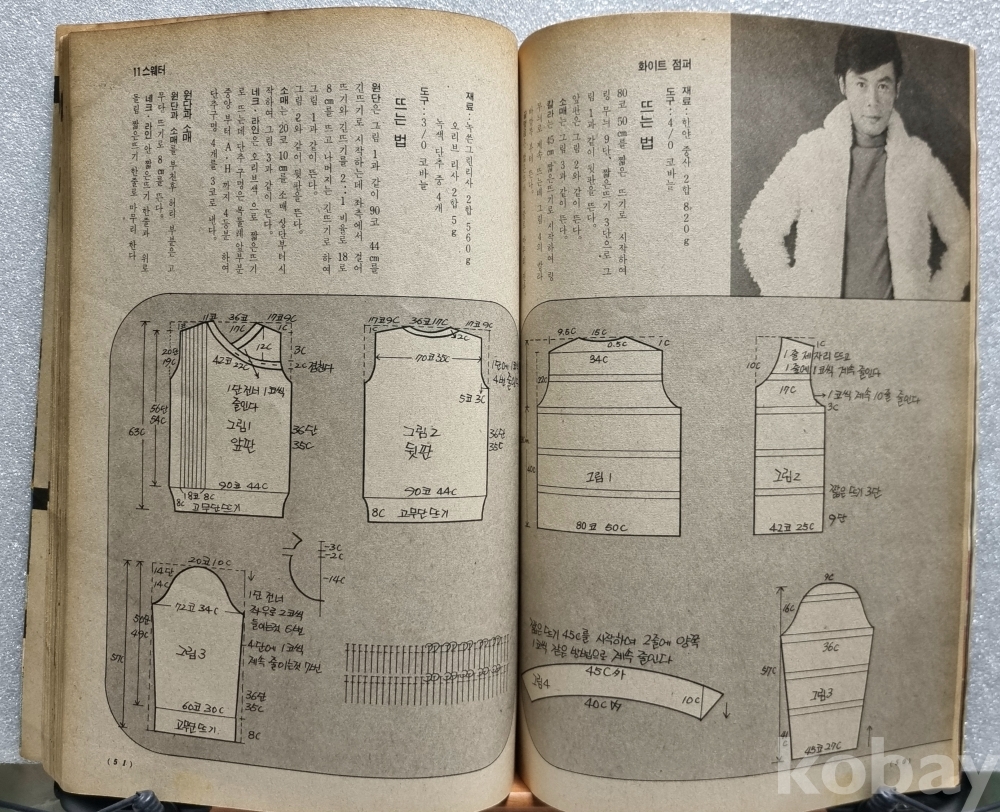 화이트 점퍼
재료:
도구:4/0 코바늘
뜨는 법
80코 50cm를 짧은 뜨기로 시작하여
링 무늬 9단, 짧은뜨기 3단으로 그
림 1과 같이 뒷판을 뜬다.
앞판은 그림 2와 같이 뜬다.
소매는 그림 3과 같이 뜬다.
9.5C 15C
0.5C 1C
34C
그림 1
80코 50C
10C
1C
1줄 제자리 뜨고
1줄에 1코씩 계속 줄인다
17C
1코씩 계속 10를 줄인다
3C
그림2
짧은 뜨기 3단
9단
42코 25C
짧은 뜨기 45C를 시작하여 2줄에 양쪽
1코씩 같은 방법으로 계속 줄인다
45C 外
그림4
40C 內
10C
9C
16C
36C
57C
그림3
45코 27C
11 스웨터
재료:녹쑨그린리사 2합 560g
오리브 리사 2합 5g
녹색 단추 중 4개
도구:3/0 코바늘
뜨는 법
원단은 그림 1과 같이 90코 44cm를
긴뜨기로 시작하는데 좌측에서 걸어
뜨기와 긴뜨기를 2:1 비율로 18코
8cm를 뜨고 나머지는 긴뜨기로 하여
그림 1과 같이 뜬다.
그림 2와 같이 뒷판을 뜬다.
소매는 20코 10cm를 소매 상단부터 시
작하여 그림 3과 같이 뜬다.
네크·라인은 오리브색으로 짧은뜨기
로 뜨는데 단추 구멍은 목둘레 앞부분
중앙부터 A·H까지 4등분하여
단추구멍 4개를 3코로 낸다.
원단과 소매
원단과 소매를 붙친후 허리 부분은 고
무단 뜨기로 8cm를 뜬다.
네크·라인 안 짧은뜨기 한줄과 위로
돌림 짧은뜨기 한줄로 마무리 한다
11코 36코 17코9C
17C 1C
12C
3C
20단
19C
42코 22C
2C 겹친다
1단 건너 1코씩
줄인다
56단
54C
63C
그림1
앞판
36단
35C
90코 44C
18코 8C
8C
고무단 뜨기
17코9C 36코17C 17코 9C
1C
2C
70코 35C
5코 3C
그림2
뒷판
36단
35C
90코 44C
8C
고무단 뜨기
20코 10C
14단
14C
72코 34C
50단
49C
57C
그림3
60코 30C
고무단 뜨기
1단 건너
좌우로 2코씩
4단에 1코씩
계속 줄이는것 7번
36단
35C
8C
-3C
-2C
-14C
(51)
kobay